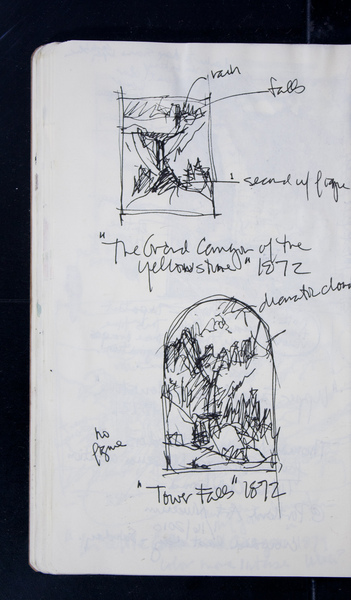 falls
second w/
"The Grand Canyon of the
Yellowstone" 1872
dramatic
no
figure
"Tower Falls" 1872